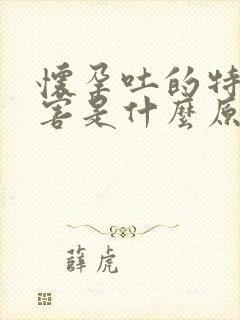 懷孕吐的特
害是什麼原
薛虎